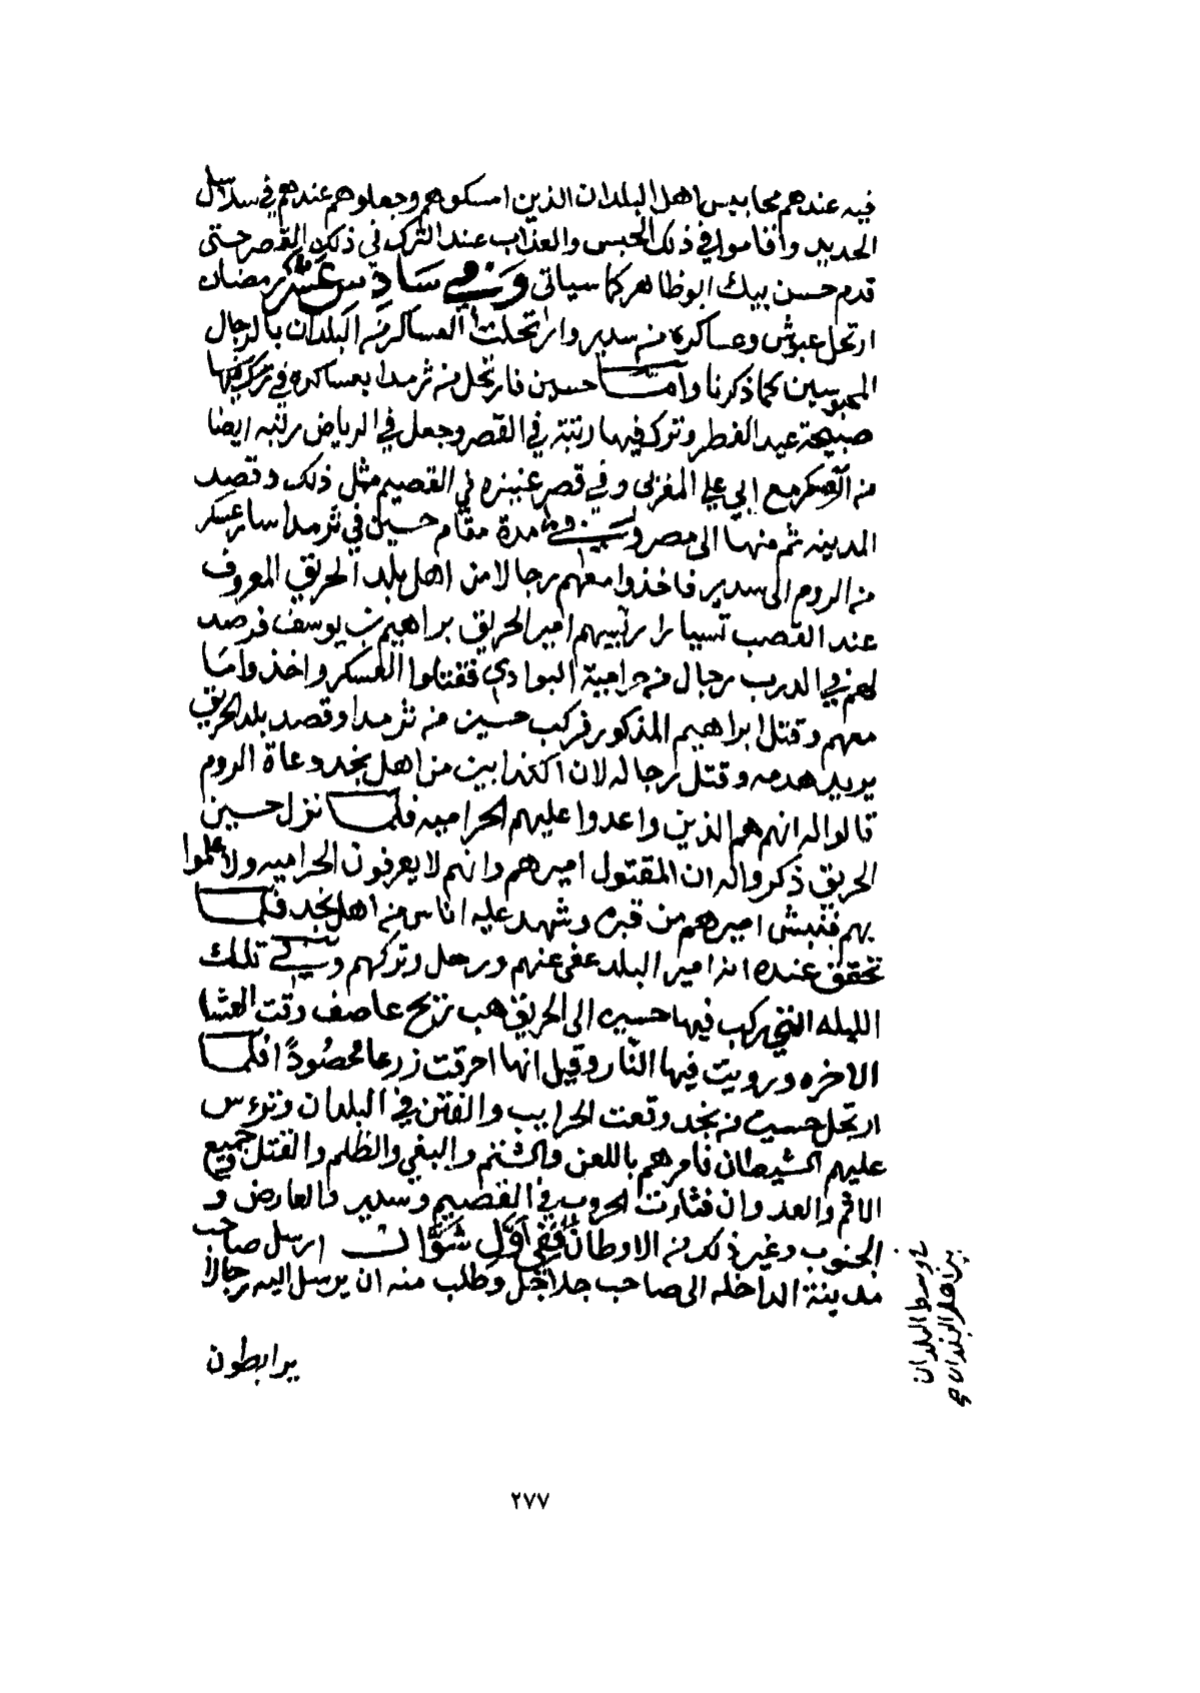 فيه عندهم محابيس اهل البلدان الذين امسكوهم وجعلوهم عندهم في سلاسل
الحديد واقاموا في ذلك الحبس والعذاب عند الترك في ذلك القصر حتى
قدم حسن بيك ابوظاهر كما سياتي وفي سادس عشر رمضان
ارتحل عبوش وعساكره من سدير وارتحلت العساكر من البلدان بالرجال
المحبوسين كما ذكرنا واما حسين فارتحل من ثرمدا بعساكره في تركيتها
صبيحة عيد الفطر وترك فيها رتبة في القصر وجعل في الرياض رتبه ايضا
من العسكر مع ابي علي المغربي وفي قصر عنيزه في القصيم مثل ذلك وقصد
المدينه ثم منها الى مصر وفي مدة مقام حسين في ثرمدا سار عسكر
من الروم الى سدير فاخذوا معهم رجالا من اهل بلد الحريق المعروف
عند القصب تسيارا رئيسهم امير الحريق براهيم بن يوسف فرصد
لهم في الدرب رجال من حرامية البوادي فقتلوا العسكر واخذوا ما
معهم وقتل ابراهيم المذكور فركب حسين من ثرمدا وقصد بلد الحريق
يريد هدمه وقتل رجاله لان الكذابين من اهل نجد ودعاة الروم
قالوا له انهم هم الذين واعدوا عليهم الحراميه فلما نزل حسين
الحريق ذكروا له ان المقتول اميرهم وانهم لا يعرفون الحراميه ولا علموا
بهم فنبش اميرهم من قبره وشهد عليه اناس من اهل نجد فلما
تحقق عنده انه امير البلد عفى عنهم ورحل وتركهم وفي تلك
الليله التي ركب فيها حسين الى الحريق هب ريح عاصف وقت العشا
الاخره ورويت فيها النار وقيل انها احرقت زرعا محصودا فلما
ارتحل حسين من نجد وقعت الحرايب والفتن في البلدان وترءس
عليهم الشيطان فامرهم باللعن والشتم والبغي والظلم والقتل وجميع
الاثم والعدوان فثارت الحروب في القصيم وسدير والعارض و
الجنوب وغير ذلك من الاوطان ففي اول شوال ارسل صاحب
مدينة الداخله الى صاحب جلاجل وطلب منه ان يرسل اليه رجالا
يرابطون
وسط البلدان
بين اهل البلدان
٢٧٧